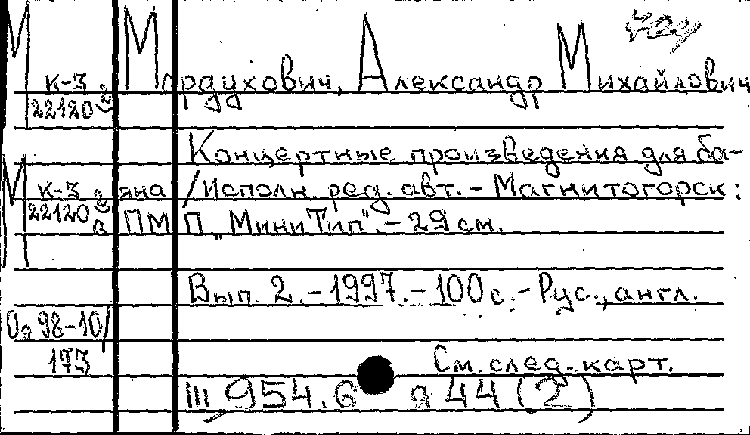 М
К-3
22120
Мордухович, Александр Михайлович
Концертные произведения для ба-
М К-3
22120
яна / Исполн. ред. авт. - Магнитогорск:
ПМП „МиниТип". - 29 см.
Вып. 2. - 1997. - 100 с. - Рус., англ.
98-10/
173
См. след. карт.
III 954.6 а 44 (2)